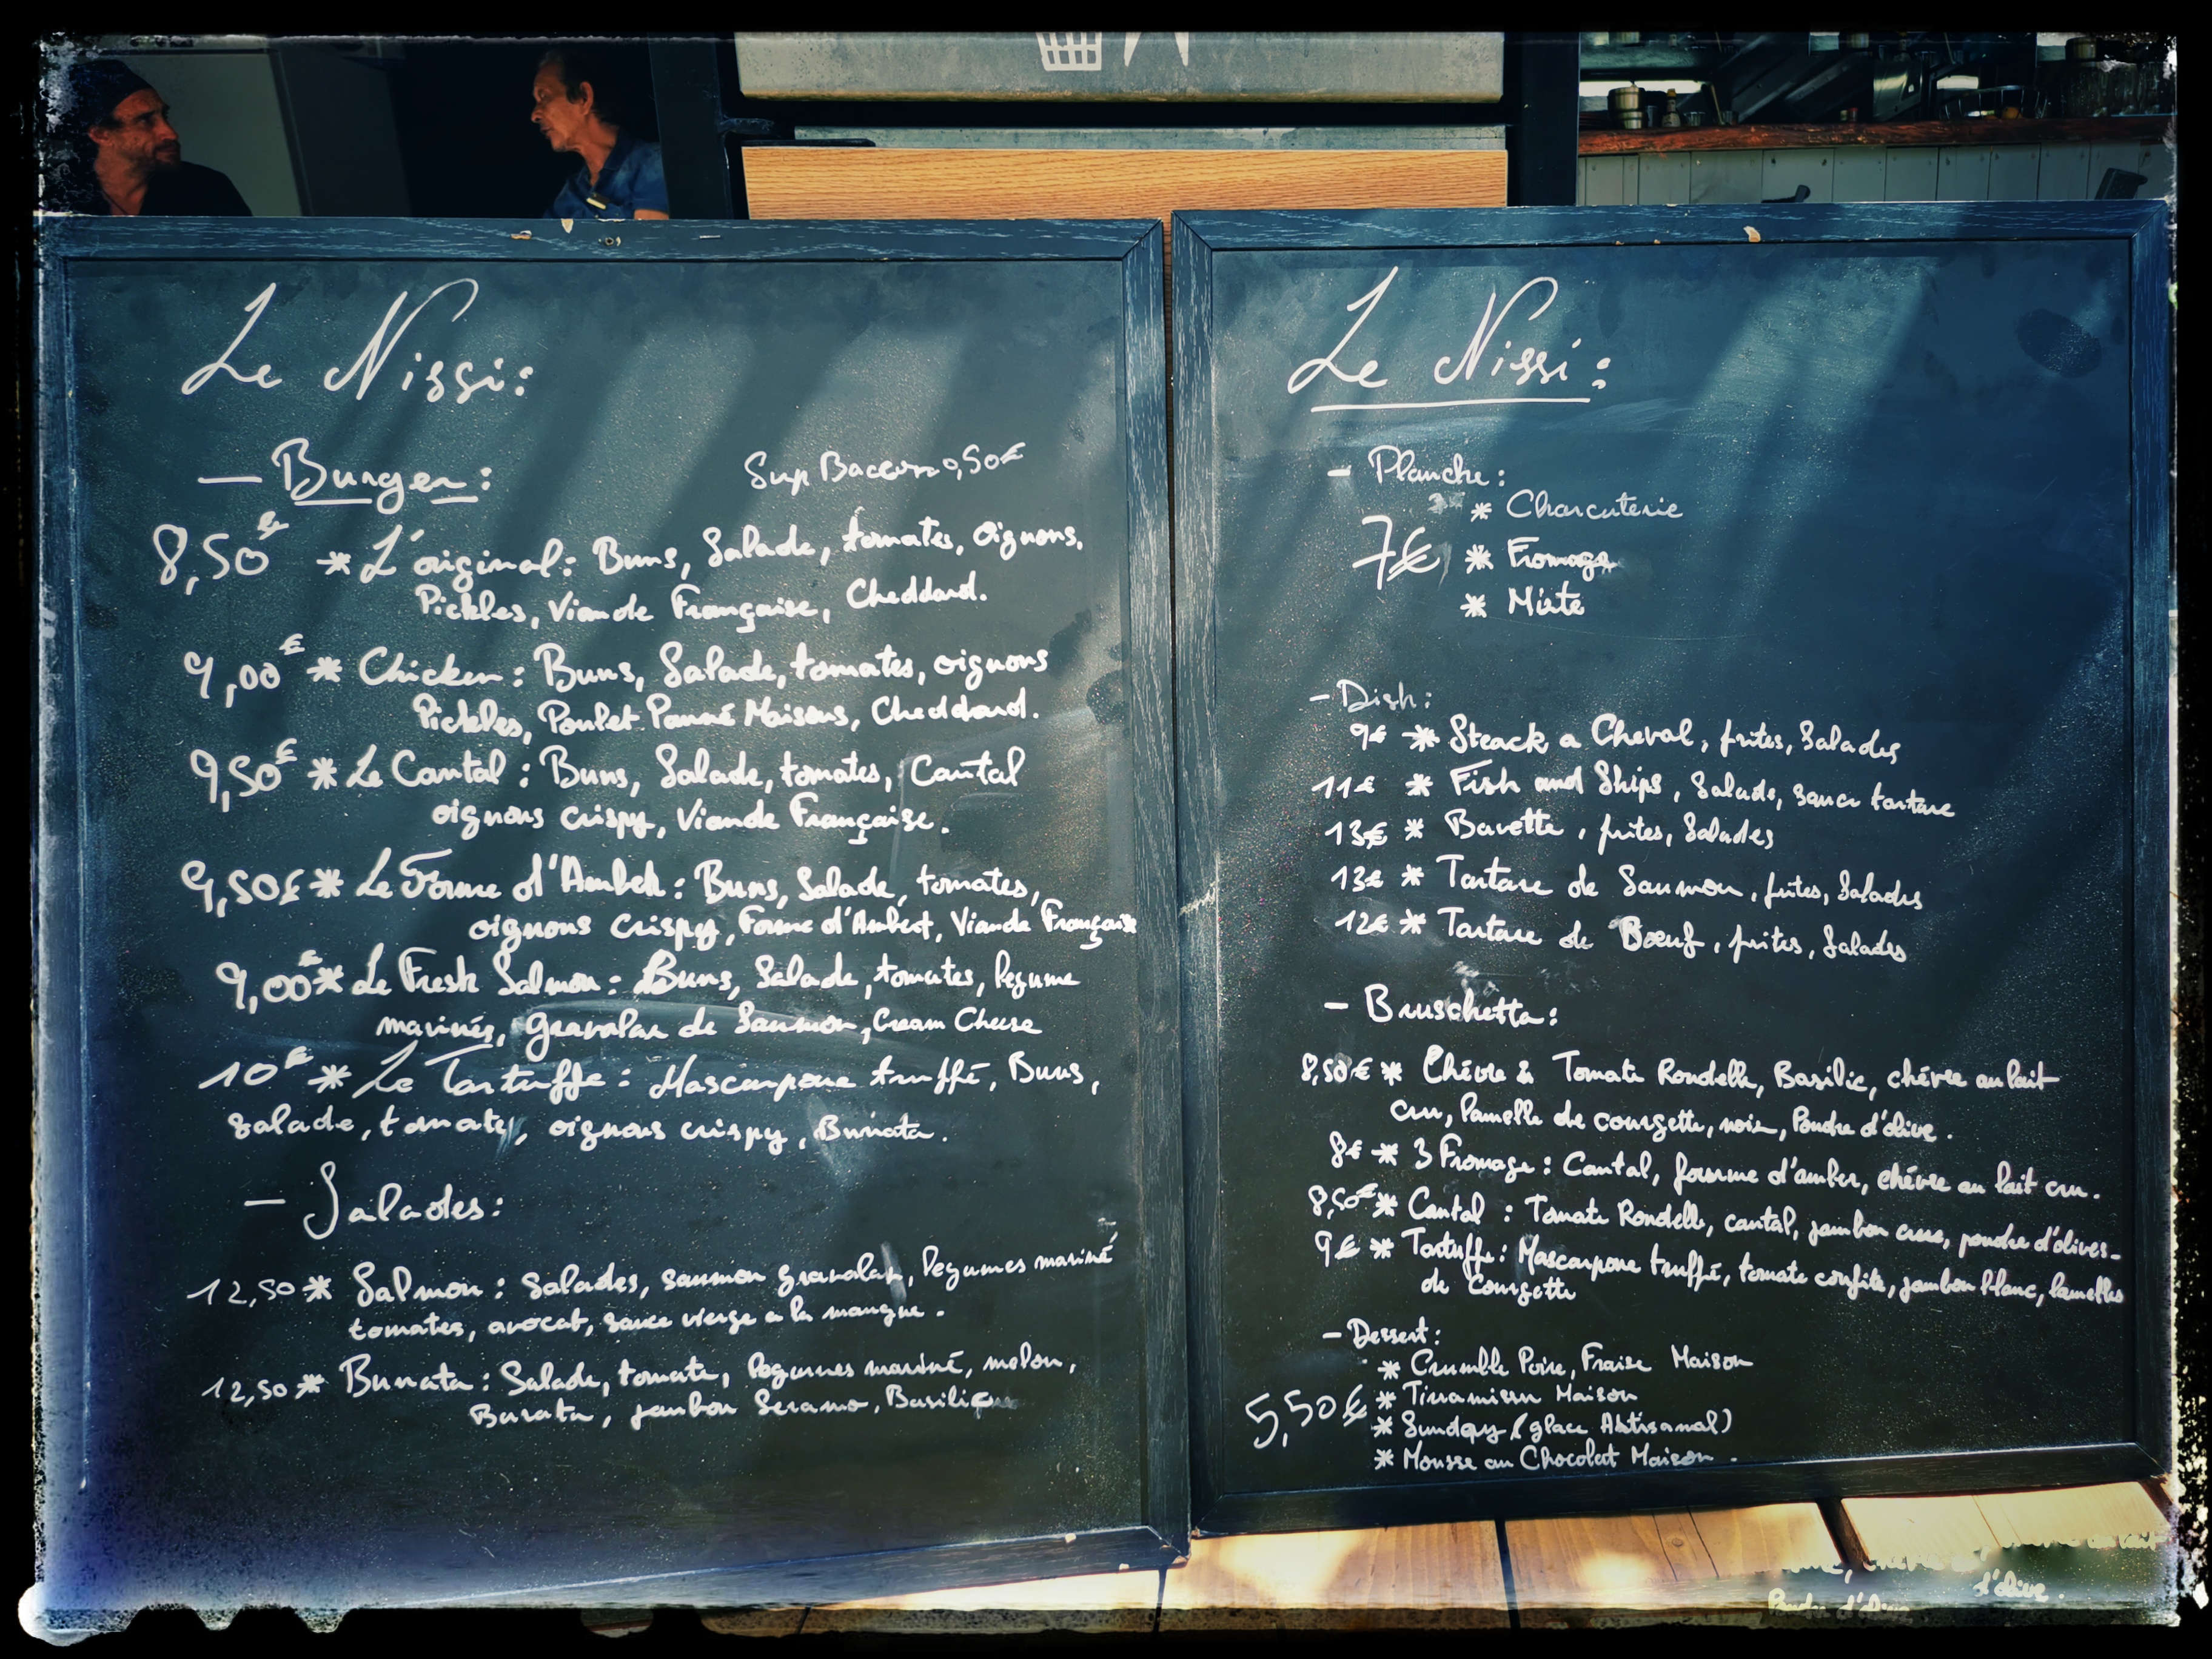 Le Nissi:
- Burger: Sup Bacon 0,50€
8,50€ * L'original: Buns, Salade, tomates, oignons,
Pickles, Viande Française, Cheddard.
9,00€ * Chicken: Buns, Salade, tomates, oignons
Pickles, Poulet Panné Maisons, Cheddard.
9,50€ * Le Cantal: Buns, Salade, tomates, Cantal
oignons crispy, Viande Française.
9,50€ * Le Forme d'Ambert: Buns, Salade, tomates,
oignons crispy, Forme d'Ambert, Viande Française
9,00€ * Le Fresh Salmon: Buns, Salade, tomates, legume
marinés, gravalax de Saumon, Cream Cheese
10€ * Le Tartuffe: Mascarpone truffé, Buns,
salade, tomates, oignons crispy, Burrata.
- Salades:
12,50 * Salmon: salades, saumon gravalax, legumes mariné
tomates, avocat, sauce vierge a la mangue.
12,50 * Burrata: Salade, tomate, legumes mariné, melon,
Burata, jambon Serano, Basilique
Le Nissi:
- Planche:
* Charcuterie
7€ * Fromage
* Mixte
- Dish:
9€ * Steack a Cheval, frites, Salades
11€ * Fish and Ships, Salade, sauce tartare
13€ * Bavette, frites, Salades
13€ * Tartare de Saumon, frites, Salades
12€ * Tartare de Bœuf, frites, Salades
- Bruschetta:
8,50€ * Chévre & Tomate Rondelle, Basilic, chévre au lait
cru, lamelle de courgette, noix, Poudre d'olive.
8€ * 3 Fromage: Cantal, fourme d'amber, chévre au lait cru.
8,50€ * Cantal: Tomate Rondelle, cantal, jambon crus, poudre d'olives-
9€ * Tartuffe: Mascarpone truffé, tomate confite, jambon blanc, lamelles
de Courgette
- Dessert:
* Crumble Poire, Fraise Maison
5,50€ * Tirramisu Maison
* Sunday (glace Artisanal)
* Mousse au Chocolat Maison.
d'olive.
Poudre d'olive